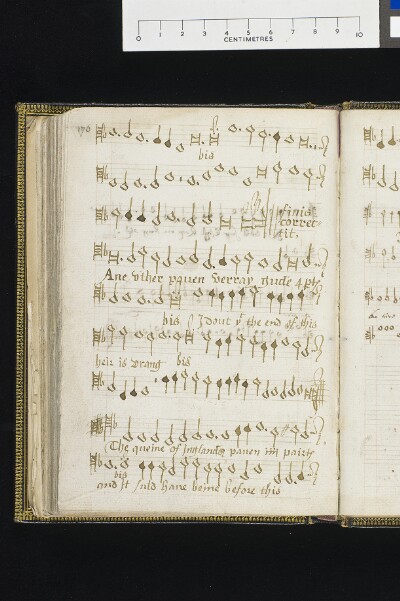 0 1 2 3 4 5 6 7 8 9 10
CENTIMETRES
176
bis
finis
correc-
tit.
Ane uther paven verray gude 4 ptis
bis I dout yt the end of this
heir is wrang bis
The queine of Inglands paven iiij pairts
bis
and it suld have beine before this